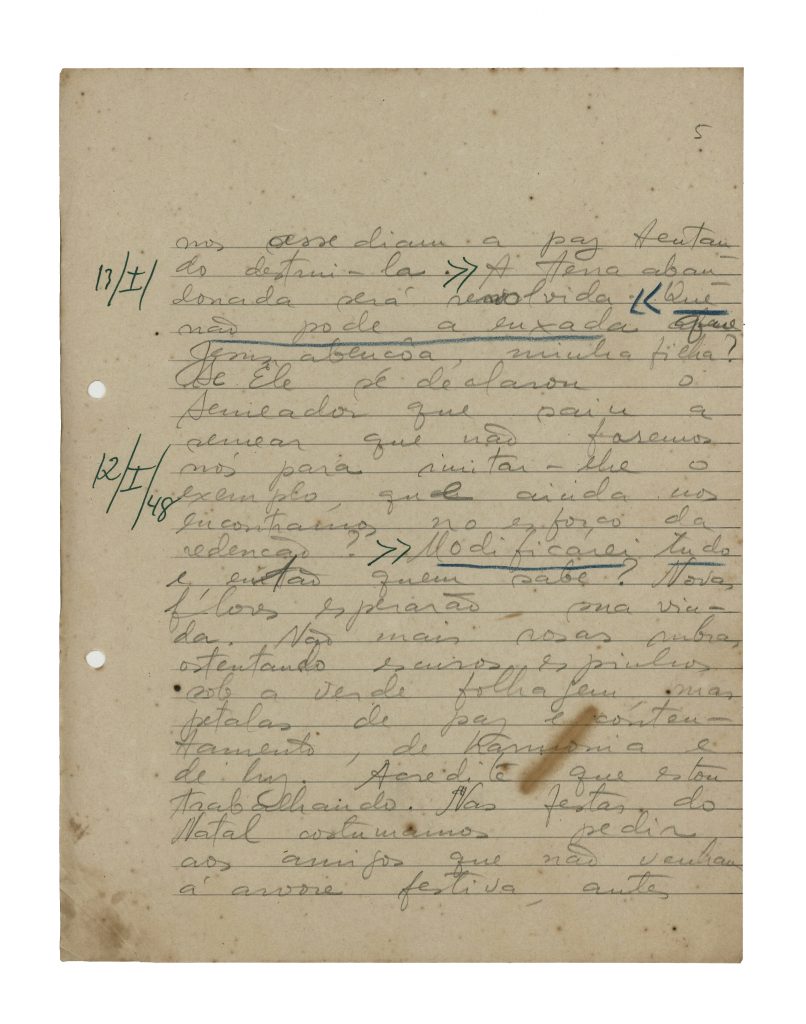 5
nos assediam a paz tentan-
13/I/
do destrui-la. >> A terra aban-
donada será revolvida. << Que
não pode a enxada que
Jesus abençôa, minha filha?
Se Êle se declarou o
Semeador que saiu a
semear que não faremos
12/I/48
nós para imitar-lhe o
exemplo, que ainda nos
encontramos no esforço da
redenção? >> Modificarei tudo
e então quem sabe? Novas
flores esperarão sua vin-
da. Não mais rosas rubras
ostentando escuros espinhos
sob a verde folhagem, mas
petalas de paz e conten-
tamento, de harmonia e
de luz. Acredite que estou
trabalhando. Nas festas do
Natal costumamos pedir
aos amigos que não venham
á arvore festiva, antes